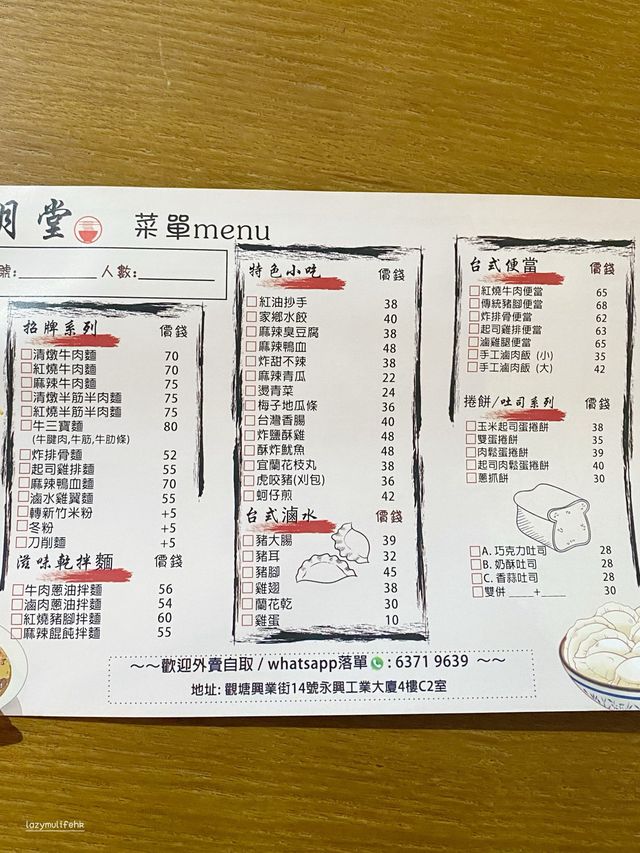 明堂 菜單menu
號: 人數:
招牌系列 價錢
清燉牛肉麵 70
紅燒牛肉麵 70
麻辣牛肉麵 75
清燉半筋半肉麵 75
紅燒半筋半肉麵 75
牛三寶麵 80
(牛腱肉,牛筋,牛肋條)
炸排骨麵 52
起司雞排麵 55
麻辣鴨血麵 70
滷水雞翼麵 55
轉新竹米粉 +5
冬粉 +5
刀削麵 +5
滋味乾拌麵 價錢
牛肉蔥油拌麵 56
滷肉蔥油拌麵 54
紅燒豬腳拌麵 60
麻辣餛飩拌麵 55
特色小吃 價錢
紅油抄手 38
家鄉水餃 40
麻辣臭豆腐 38
麻辣鴨血 48
炸甜不辣 38
麻辣青瓜 22
燙青菜 24
梅子地瓜條 36
台灣香腸 40
炸鹽酥雞 48
酥炸魷魚 48
宜蘭花枝丸 38
虎咬豬(刈包) 36
蚵仔煎 42
台式滷水 價錢
豬大腸 39
豬耳 32
豬腳 45
雞翅 38
蘭花乾 30
雞蛋 10
台式便當 價錢
紅燒牛肉便當 65
傳統豬腳便當 68
炸排骨便當 62
起司雞排便當 63
滷雞腿便當 65
手工滷肉飯 (小) 35
手工滷肉飯 (大) 42
捲餅/吐司系列 價錢
玉米起司蛋捲餅 38
雙蛋捲餅 35
肉鬆蛋捲餅 39
起司肉鬆蛋捲餅 40
蔥抓餅 30
A. 巧克力吐司 28
B. 奶酥吐司 28
C. 香蒜吐司 28
雙併 ____+____ 30
~~歡迎外賣自取 / whatsapp落單 : 6371 9639 ~~
地址: 觀塘興業街14號永興工業大廈4樓C2室
lazymulifehk